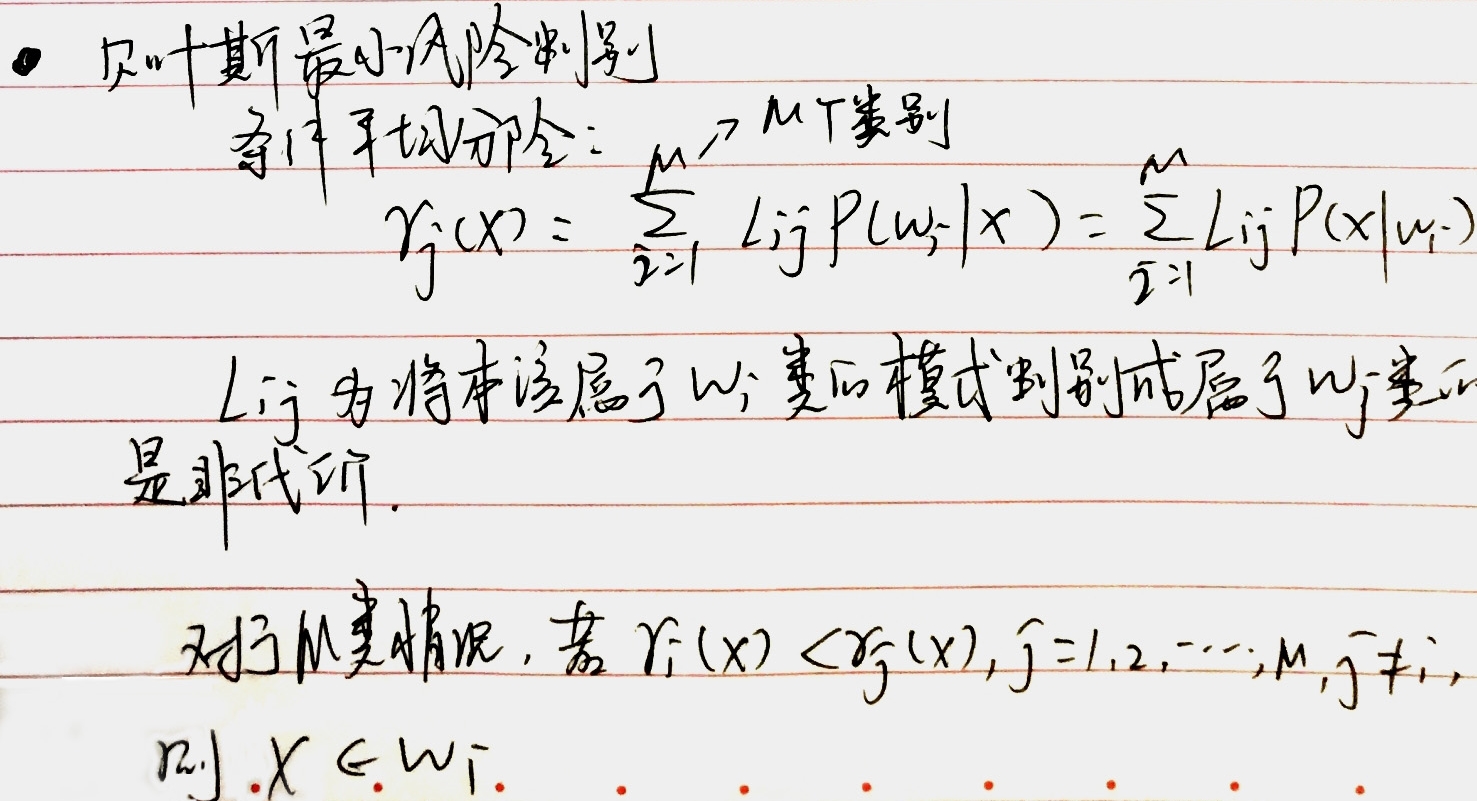 • 贝叶斯最小风险判别
条件平均风险: ↗ M个类别
γj(X) = ∑_{i=1}^{M} Lij P(wi|X) = ∑_{i=1}^{M} Lij P(X|wi)
Lij 为将本该属于 wi 类的模式判别成属于 wj 类的
是非代价.
对于M类情况, 若 γi(X) < γj(X), j=1,2,……,M, j≠i,
则 X ∈ wi.